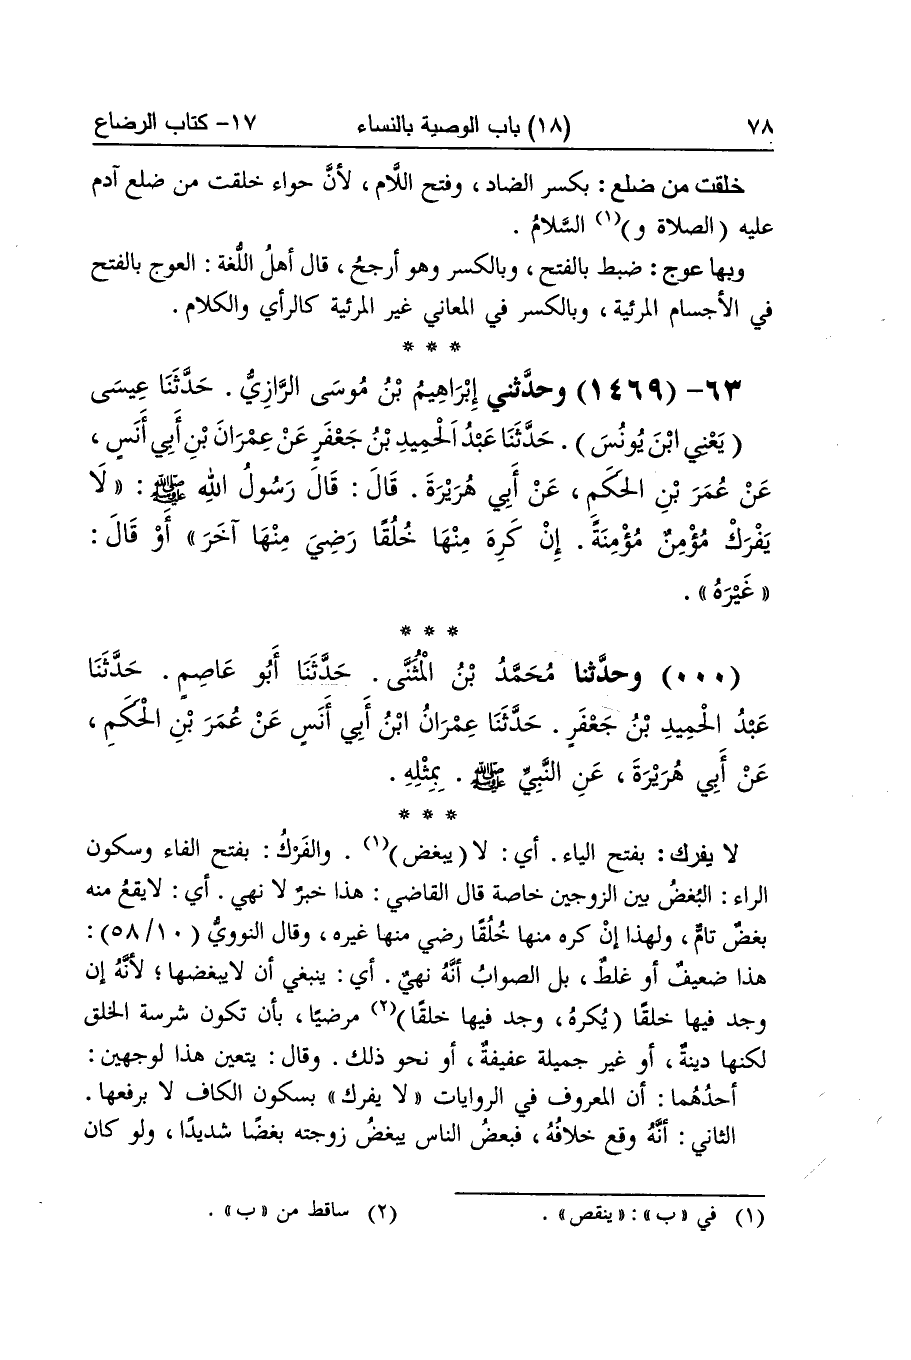 ٧٨ (١٨) باب الوصية بالنساء ١٧- كتاب الرضاع
خلقت من ضلع : بكسر الضاد ، وفتح اللَّام ، لأنَّ حواء خلقت من ضلع آدم
عليه (الصلاة و)(١) السَّلامُ .
وبها عوج : ضبط بالفتح ، وبالكسر وهو أرجحُ ، قال أهلُ اللُّغة : العوج بالفتح
في الأجسام المرئية ، وبالكسر في المعاني غير المرئية كالرأي والكلام .
* * *
٦٣- (١٤٦٩) وحدَّثني إِبْرَاهِيمُ بْنُ مُوسَى الرَّازِيُّ . حَدَّثَنَا عِيسَى
(يَعْنِي ابْنَ يُونُسَ) . حَدَّثَنَا عَبْدُ الْحَمِيدِ بْنُ جَعْفَرٍ عَنْ عِمْرَانَ بْنِ أَبِي أَنَسٍ ،
عَنْ عُمَرَ بْنِ الحَكَمِ ، عَنْ أَبِي هُرَيْرَةَ . قَالَ : قَالَ رَسُولُ اللهِ ﷺ : « لَا
يَفْرَكْ مُؤْمِنٌ مُؤْمِنَةً . إِنْ كَرِهَ مِنْهَا خُلُقًا رَضِيَ مِنْهَا آخَرَ » أَوْ قَالَ :
« غَيْرَهُ » .
* * *
(٠٠٠) وحدَّثنا مُحَمَّدُ بْنُ الْمُثَنَّى . حَدَّثَنَا أَبُو عَاصِمٍ . حَدَّثَنَا
عَبْدُ الْحَمِيدِ بْنُ جَعْفَرٍ . حَدَّثَنَا عِمْرَانُ ابْنُ أَبِي أَنَسٍ عَنْ عُمَرَ بْنِ الْحَكَمِ ،
عَنْ أَبِي هُرَيْرَةَ ، عَنِ النَّبِيِّ ﷺ . بِمِثْلِهِ .
* * *
لا يفرك : بفتح الياء . أي : لا (يبغض)(١) . والفَرْكُ : بفتح الفاء وسكون
الراء : البُغضُ بين الزوجين خاصة قال القاضي : هذا خبرٌ لا نهي . أي : لايقعُ منه
بغضٌ تامٌّ ، ولهذا إنْ كره منها خُلُقًا رضي منها غيره ، وقال النوويُّ (٥٨/١٠) :
هذا ضعيفٌ أو غلطٌ ، بل الصوابُ أنَّهُ نهيٌ . أي : ينبغي أن لايبغضها ؛ لأنَّهُ إن
وجد فيها خلقًا (يُكرهُ ، وجد فيها خلقًا)(٢) مرضيًا ، بأن تكون شرسة الخلق
لكنها دينةٌ ، أو غير جميلة عفيفةٌ ، أو نحو ذلك . وقال : يتعين هذا لوجهين :
أحدُهُما : أن المعروف في الروايات « لا يفرك » بسكون الكاف لا برفعها .
الثاني : أنَّهُ وقع خلافُهُ ، فبعضُ الناس يبغضُ زوجته بغضًا شديدًا ، ولو كان
(١) في « ب » : « ينقص » . (٢) ساقط من « ب » .